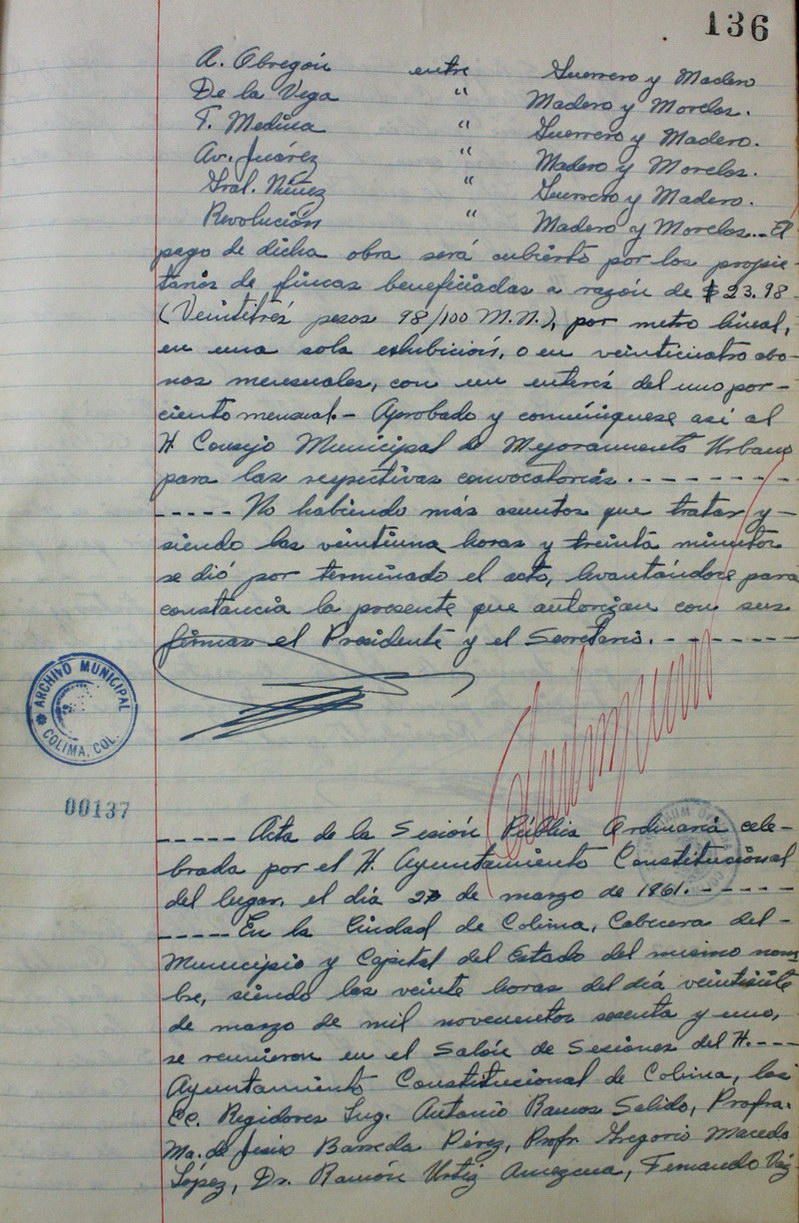 136
A. Obregón entre Guerrero y Madero
De la Vega " Madero y Morelos.
T. Medina " Guerrero y Madero.
Av. Juárez " Madero y Morelos.
Gral. Núñez " Guerrero y Madero.
Revolución " Madero y Morelos.- El
pago de dicha obra será cubierto por los propie-
tarios de fincas beneficiadas a razón de $23.98
(Veintitrés pesos 98/100 M.N.), por metro lineal,
en una sola exhibición, o en veinticuatro abo-
nos mensuales, con un interés del uno por-
ciento mensual.- Aprobado y comuníquese así al
H. Consejo Municipal de Mejoramiento Urbano
para las respectivas convocatorias.--------
----- No habiendo más asuntos que tratar y-
siendo las veintiuna horas y treinta minutos
se dió por terminado el acto, levantándose para
constancia la presente que autorizan con sus
firmas el Presidente y el Secretario.-------
ARCHIVO MUNICIPAL
COLIMA, COL.
00137
----- Acta de la Sesión Pública Ordinaria cele-
brada por el H. Ayuntamiento Constitucional
del lugar, el día 27 de marzo de 1961.-----
----- En la Ciudad de Colima, Cabecera del-
Municipio y Capital del Estado del mismo nom-
bre, siendo las veinte horas del día veintisiete
de marzo de mil novecientos sesenta y uno,
se reunieron en el Salón de Sesiones del H.---
Ayuntamiento Constitucional de Colima, los
CC. Regidores Ing. Antonio Ramos Salido, Profra.
Ma. de Jesús Barreda Pérez, Profr. Gregorio Macedo
López, Dr. Ramón Urtiz Amezcua, Fernando Váz